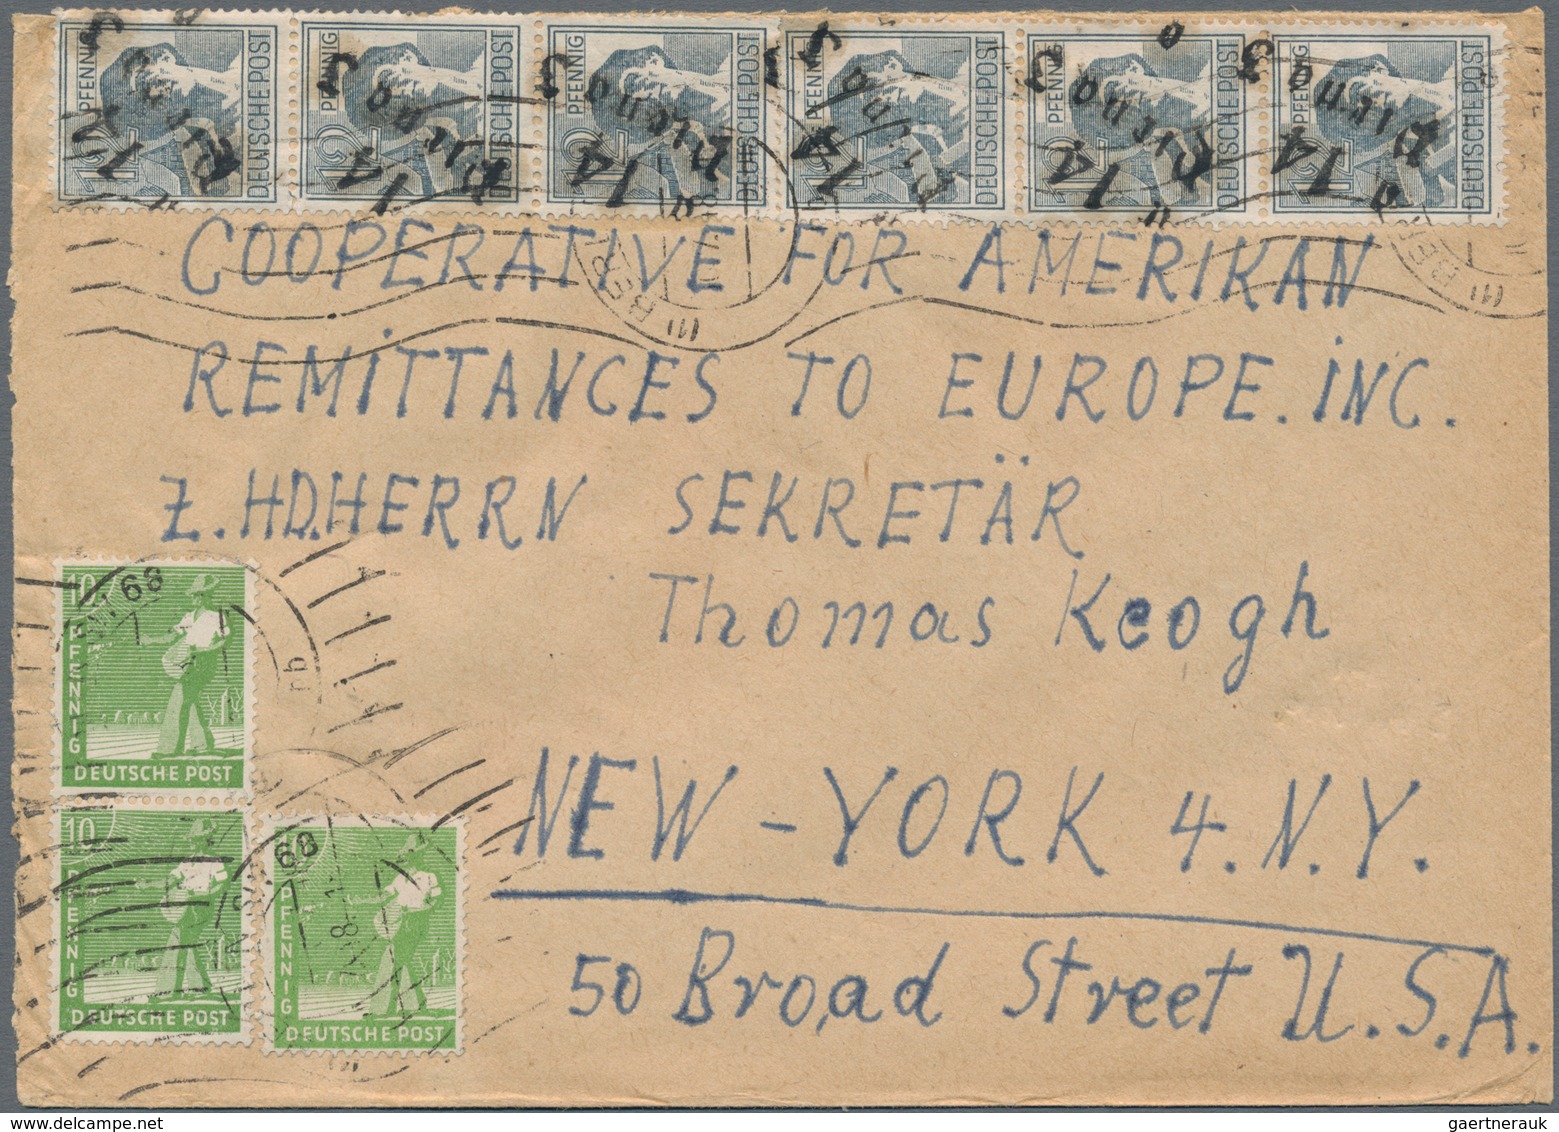 12 PFENNIG DEUTSCHE POST 12 PFENNIG DEUTSCHE POST 12 PFENNIG DEUTSCHE POST 12 PFENNIG DEUTSCHE POST 12 PFENNIG DEUTSCHE POST 12 PFENNIG DEUTSCHE POST
14 Pirna 3 14 Pirna 3 14 Pirna 3 14 Pirna 3 14 Pirna 3 14 Pirna 3
COOPERATIVE FOR AMERIKAN
REMITTANCES TO EUROPE. INC.
Z. HD. HERRN SEKRETÄR
Thomas Keogh
NEW - YORK 4. N.Y.
50 Broad Street U.S.A.
10 PFENNIG
DEUTSCHE POST
10 PFENNIG
DEUTSCHE POST
10 PFENNIG
DEUTSCHE POST
gaertnerauk @ delcampe.net